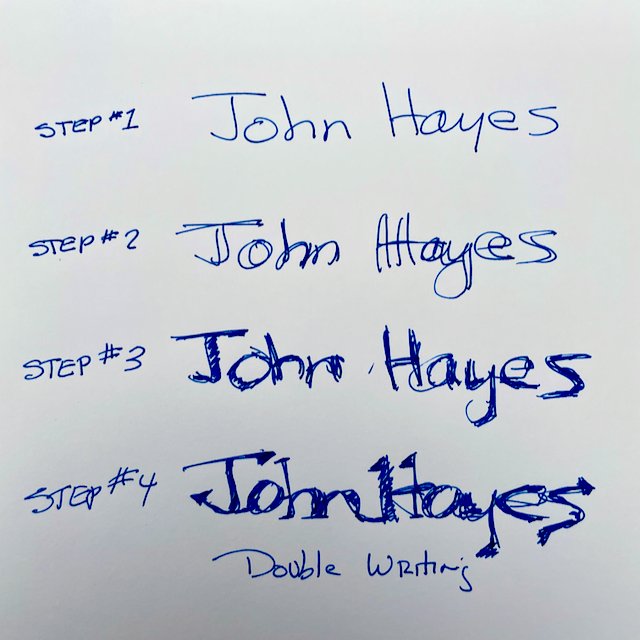 STEP #1 John Hayes
STEP #2 John Hayes
STEP #3 John Hayes
STEP #4 John Hayes
Double Writing